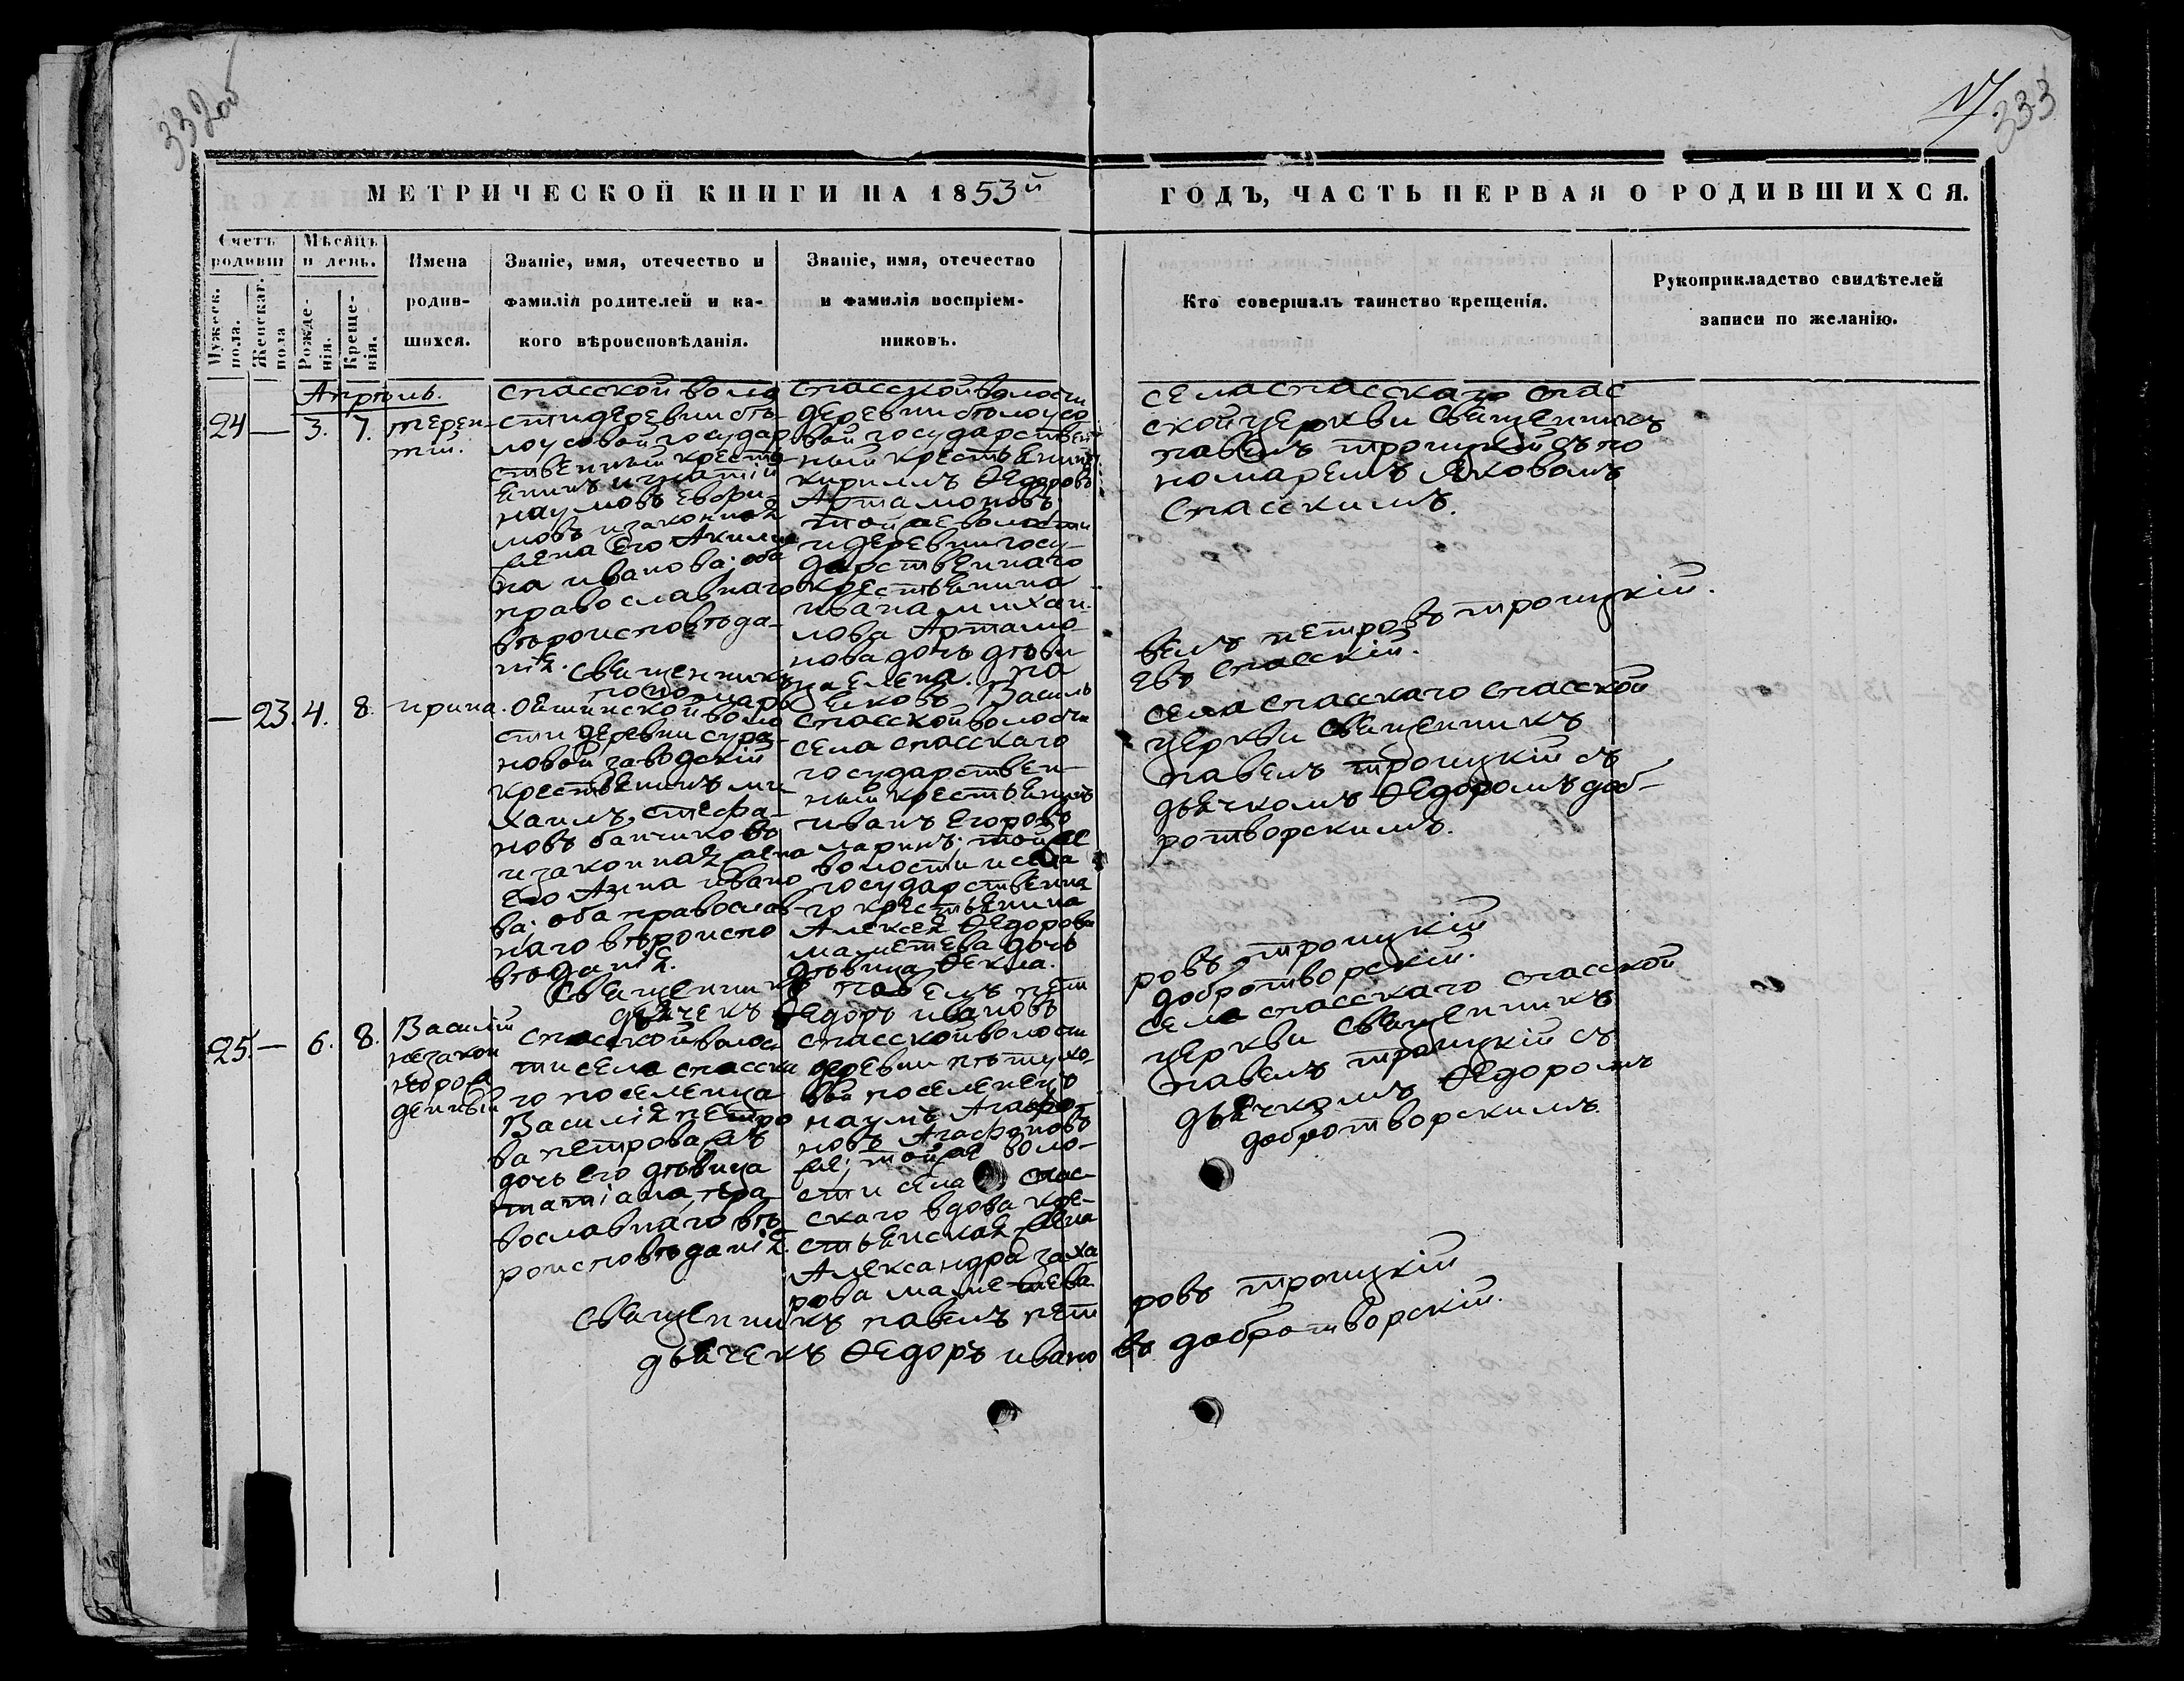 332об
17.
333
МЕТРИЧЕСКОЙ КНИГИ НА 1853й
ГОДЪ, ЧАСТЬ ПЕРВАЯ О РОДИВШИХСЯ.
Счетъ родивш
Мужеск. пола.
Женскаг. пола
Мѣсяцъ и день.
Рожде-нія.
Креще-нія.
Имена
родив-
шихся.
Званіе, имя, отечество и
фамилія родителей и ка-
кого вѣроисповѣданія.
Званіе, имя, отечество
и фамилія воспріем-
никовъ.
Кто совершалъ таинство крещенія.
Рукоприкладство свидѣтелей
записи по желанію.
Апрѣль.
24 — 3. 7.
терен-
тій.
спасской воло
сти деревни бѣ-
лоусовой государ
ственный кресть
янинъ игнатій
наумовъ евфи-
мовъ и законная
жена его Акили
на иванова; оба
православнаго
вѣроисповѣда-
нія.
спасской волости
деревни бѣлоусо
вой государствен
ный крестьянинъ
кириллъ Ѳедоровъ
Артамоновъ
той же волости
и деревни госу-
дарственнаго
крестьянина
ивана михаи-
лова Артамо
нова дочь дѣви
ца елена.
села спасскаго спас
ской церкви священникъ
павелъ троицкій съ по
номаремъ яковомъ
спасскимъ.
священникъ па
велъ петровъ троицкій.
пономарь яковъ василь
евъ спасскій.
— 23. 4. 8.
ирина.
оешинской воло
сти деревни сура-
новой заводскій
крестьянинъ ми
хаилъ стефа-
новъ банчиковъ
и законная жена
его Анна ивано
ва; оба правосла-
наго вѣроиспо
вѣданія.
спасской волости
села спасскаго
государствен-
ный крестьянинъ
иванъ егоровъ
ларинъ; той же
волости и села
государственна
го крестьянина
Алексея Ѳедорова
маметева дочь
дѣвица Ѳекла.
села спасскаго спасской
церкви священникъ
павелъ троицкій съ
дьячкомъ Ѳедоромъ доб-
ротворскимъ.
священникъ павелъ пет
ровъ троицкій
дьячекъ Ѳедоръ ивановъ
добротворскій.
25. — 6. 8.
Василій
незакон
норож
денный
спасской волос
ти села спасска
го поселенца
Василія петро
ва петрова
дочь его дѣвица
татіана, пра-
вославнаго вѣ
роисповѣданія.
спасской волости
деревни пѣтухо-
вой поселенецъ
наумъ Агафо-
новъ Агафоновъ
же; той же воло-
сти села спас-
скаго вдова кре-
стьянская жена
Александра заха
рова маметьева
села спасскаго спасской
церкви священникъ
павелъ троицкій съ
дьячкомъ Ѳедоромъ
добротворскимъ.
священникъ павелъ пет
ровъ троицкій
дьячекъ Ѳедоръ ивано
въ добротворскій.